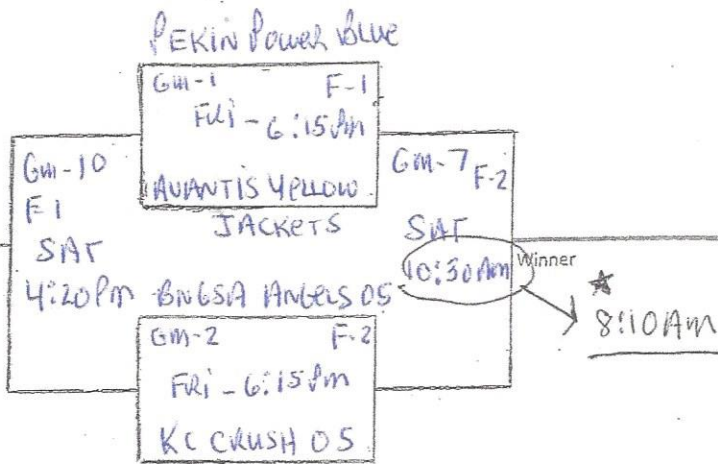 PEKIN POWER BLUE
GM-1 F-1
FRI - 6:15 PM
AVANTIS YELLOW
JACKETS
GM-10
F1
SAT
4:20 PM
GM-7 F-2
SAT
10:30 AM
Winner
8:10 AM
BNGSA ANGELS 05
GM-2 F-2
FRI - 6:15 PM
KC CRUSH 05